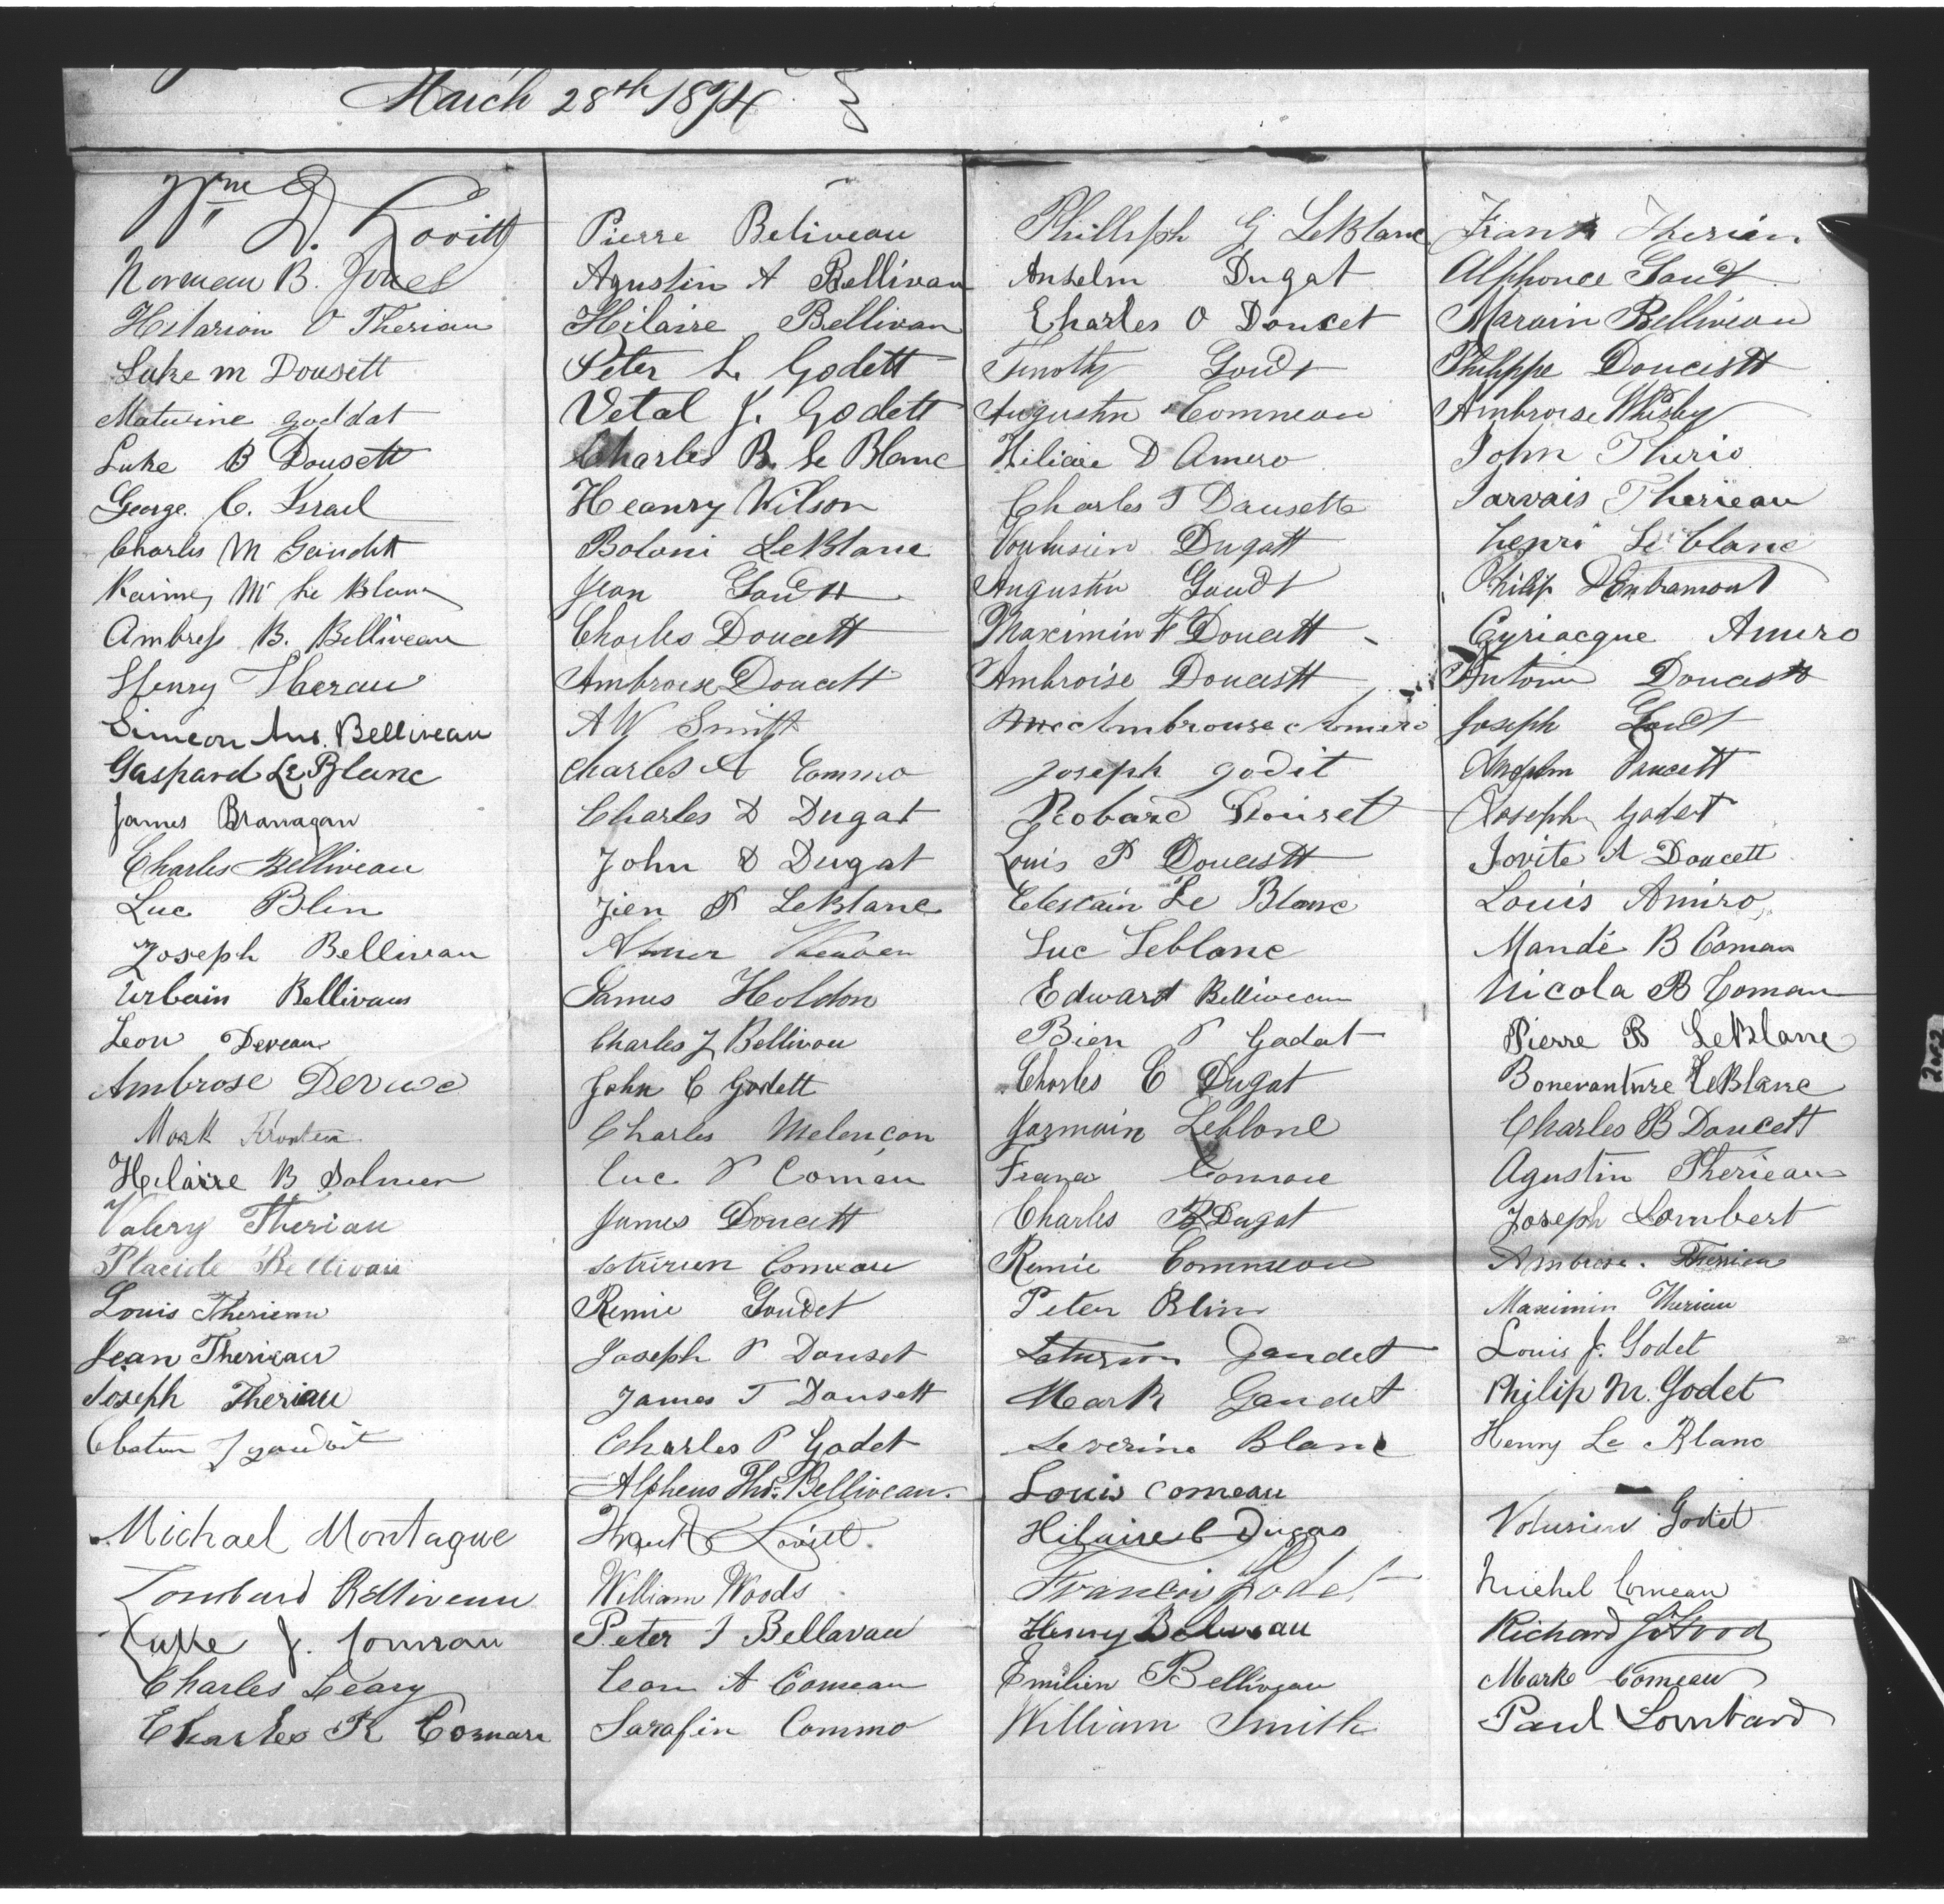 March 28th 1874
Wm D. Lovitt
Norman B. Jones
Hilarion V Theriau
Luke m Dousett
Maturine goddat
Luke B Dousett
George. C. Israel
Charles M Gaudett
M Le Blanc
Ambress B. Belliveau
Henry Therau
Simeon Aus. Belliveau
Gaspard Le Blanc
James Branagan
Charles Belliveau
Luc Blin
Joseph Belliveau
Urbain Bellivaus
Leon Deveau
Ambrose Devuse
Mark
Helaire B Dolmen
Valery Theriau
Placide Bellivau
Louis Therieau
Jean Therieau
Joseph Theriau
Michael Montague
Lombard Belliveau
Luke J. Comeau
Charles Leary
Charles K Comau
Pierre Beliveau
Agustin A Bellivau
Hilaire Bellivau
Peter L. Godett
Vetal J. Godett
Charles B. Le Blanc
Heanry Wilson
Boloni LeBlanc
Jean Goudtt
Charles Doucett
Ambroise Doucett
A W Smith
Charles A Commo
Charles D Dugat
John D Dugat
Jien P LeBlanc
Abner
James Holdon
Charles J Bellivou
John C Godett
Charles Melencon
Luc P Comeau
James Doucett
Comeau
Remie Goudet
Joseph P Douset
James T Dousett
Charles P Godet
Alpheus Thos. Belliveau.
Frank Lovitt.
William Woods
Peter J Bellavau
Leon A Comeau
Sarafin Commo
Philliph G LeBlanc
Anselm Dugat
Charles O Doucet
Timothy Goudt
Augustin Commeau
Hiliare D Amero
Charles T Dausette
Dugatt
Augustin Goudt
Maximin F Doucett
Ambroise Doucett
Ambrouse Amiro
Joseph godit
Robard Douset
Louis P Doucett
Celestain Le Blanc
Luc Leblanc
Edward Belliveau
Bien P Godat
Charles C Dugat
Jarmain Leblanc
Comoe
Charles B Dugat
Remie Commeou
Peter Blin
Saturin Gaudet
Mark Gaudet
Severine Blanc
Louis Comeau
Hilaire C Dugas
Francis Godet
Henry Beliveau
Emilien Belliveau
William Smith
Frank Therien
Alphonce Goudt
Marain Belliveau
Philippe Doucett
Ambroise Whisby
John Therio
Jarvais Therieau
Henri Le blanc
Philip DEntremont
Cyriacque Amiro
Antoine Doucett
Joseph Goudt
Anselm Doucett
Joseph Godet
Jovite A Doucett
Louis Amiro
Mandé B Comau
Nicola B Comau
Pierre B LeBlanc
Bonevanture LeBlanc
Charles B Doucett
Agustin Therieau
Joseph Lombert
Ambrose. Therrien
Maximin Theriau
Louis J. Godet
Philip M. Godet
Henry Le Blanc
Volusien Godet
Michel Comeau
Richard
Mark Comeau
Paul Lombard